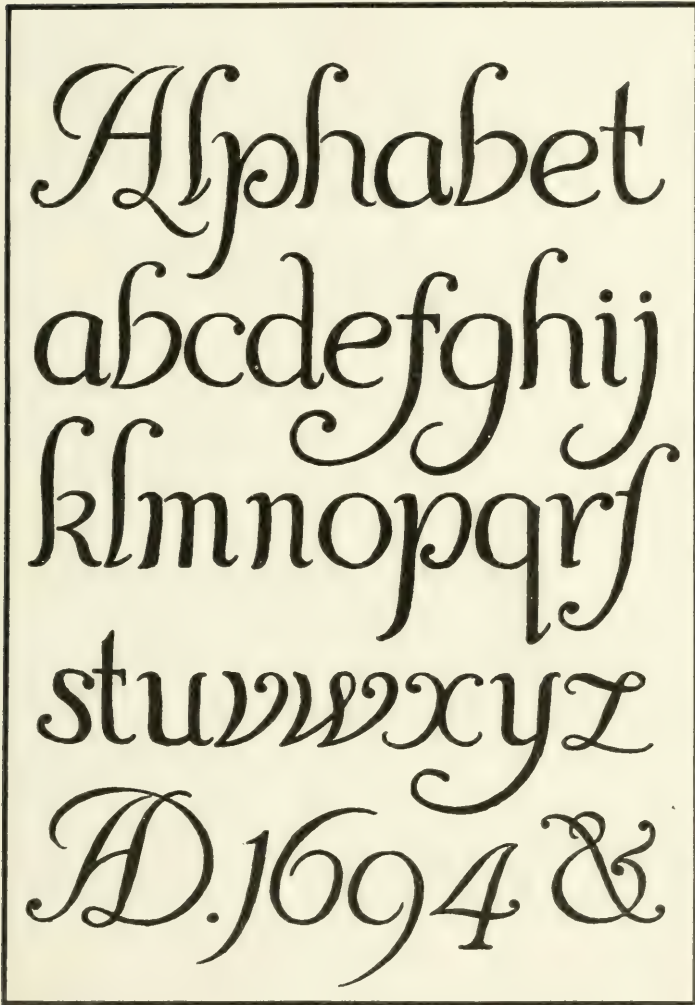 Alphabet
abcdefghij
klmnopqrſ
stuvwxyz
AD.1694 &